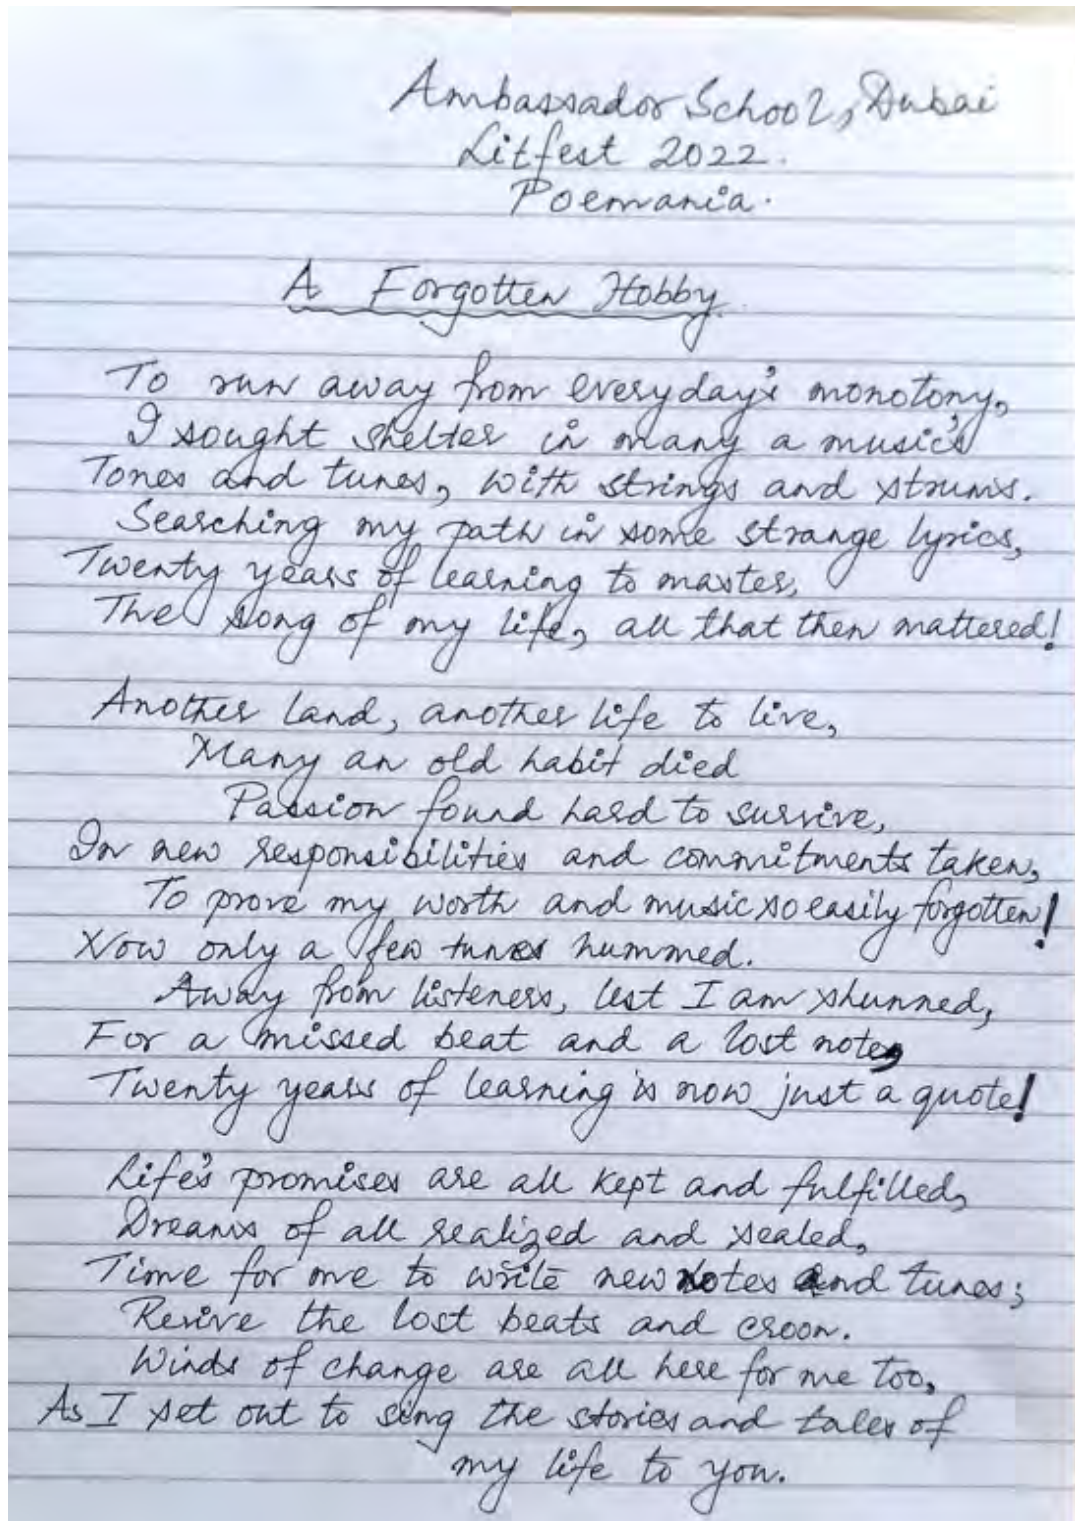 Ambassador School, Dubai
Litfest 2022.
Poemania.
A Forgotten Hobby
To run away from everyday's monotony,
I sought shelter in many a music's
Tones and tunes, with strings and strums.
Searching my path in some strange lyrics,
Twenty years of learning to master,
The song of my life, all that then mattered!
Another land, another life to live,
Many an old habit died
Passion found hard to survive,
In new responsibilities and commitments taken,
To prove my worth and music so easily forgotten!
Now only a few tunes hummed.
Away from listeners, lest I am shunned,
For a missed beat and a lost note,
Twenty years of learning is now just a quote!
Life's promises are all kept and fulfilled,
Dreams of all realized and sealed,
Time for me to write new notes and tunes;
Revive the lost beats and croon.
Winds of change are all here for me too,
As I set out to sing the stories and tales of
my life to you.